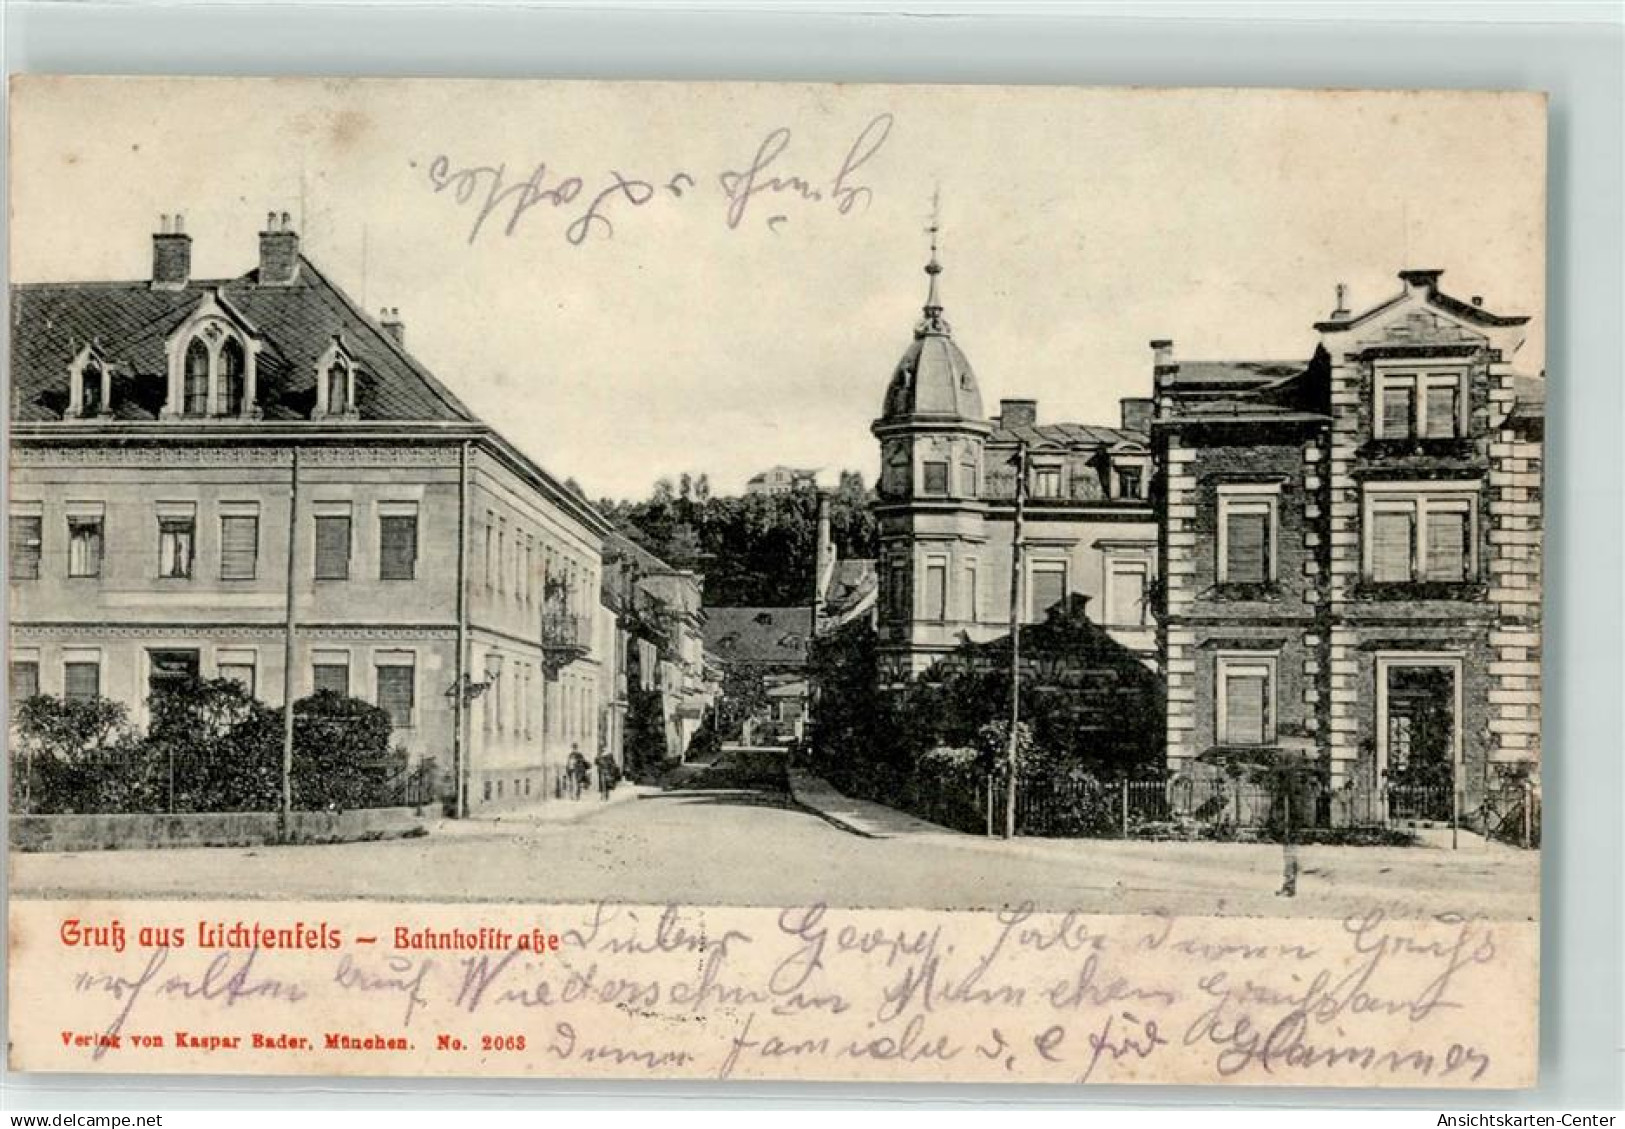 Gruß
Gruß aus Lichtenfels – Bahnhofstraße
Lieber Georg. Habe deinen Gruß
erhalten auf Wiedersehn in München Gruß an
Verlag von Kaspar Bader, München. No. 2063
deine Familie d.
www.delcampe.net
tintin1959
Ansichtskarten-Center